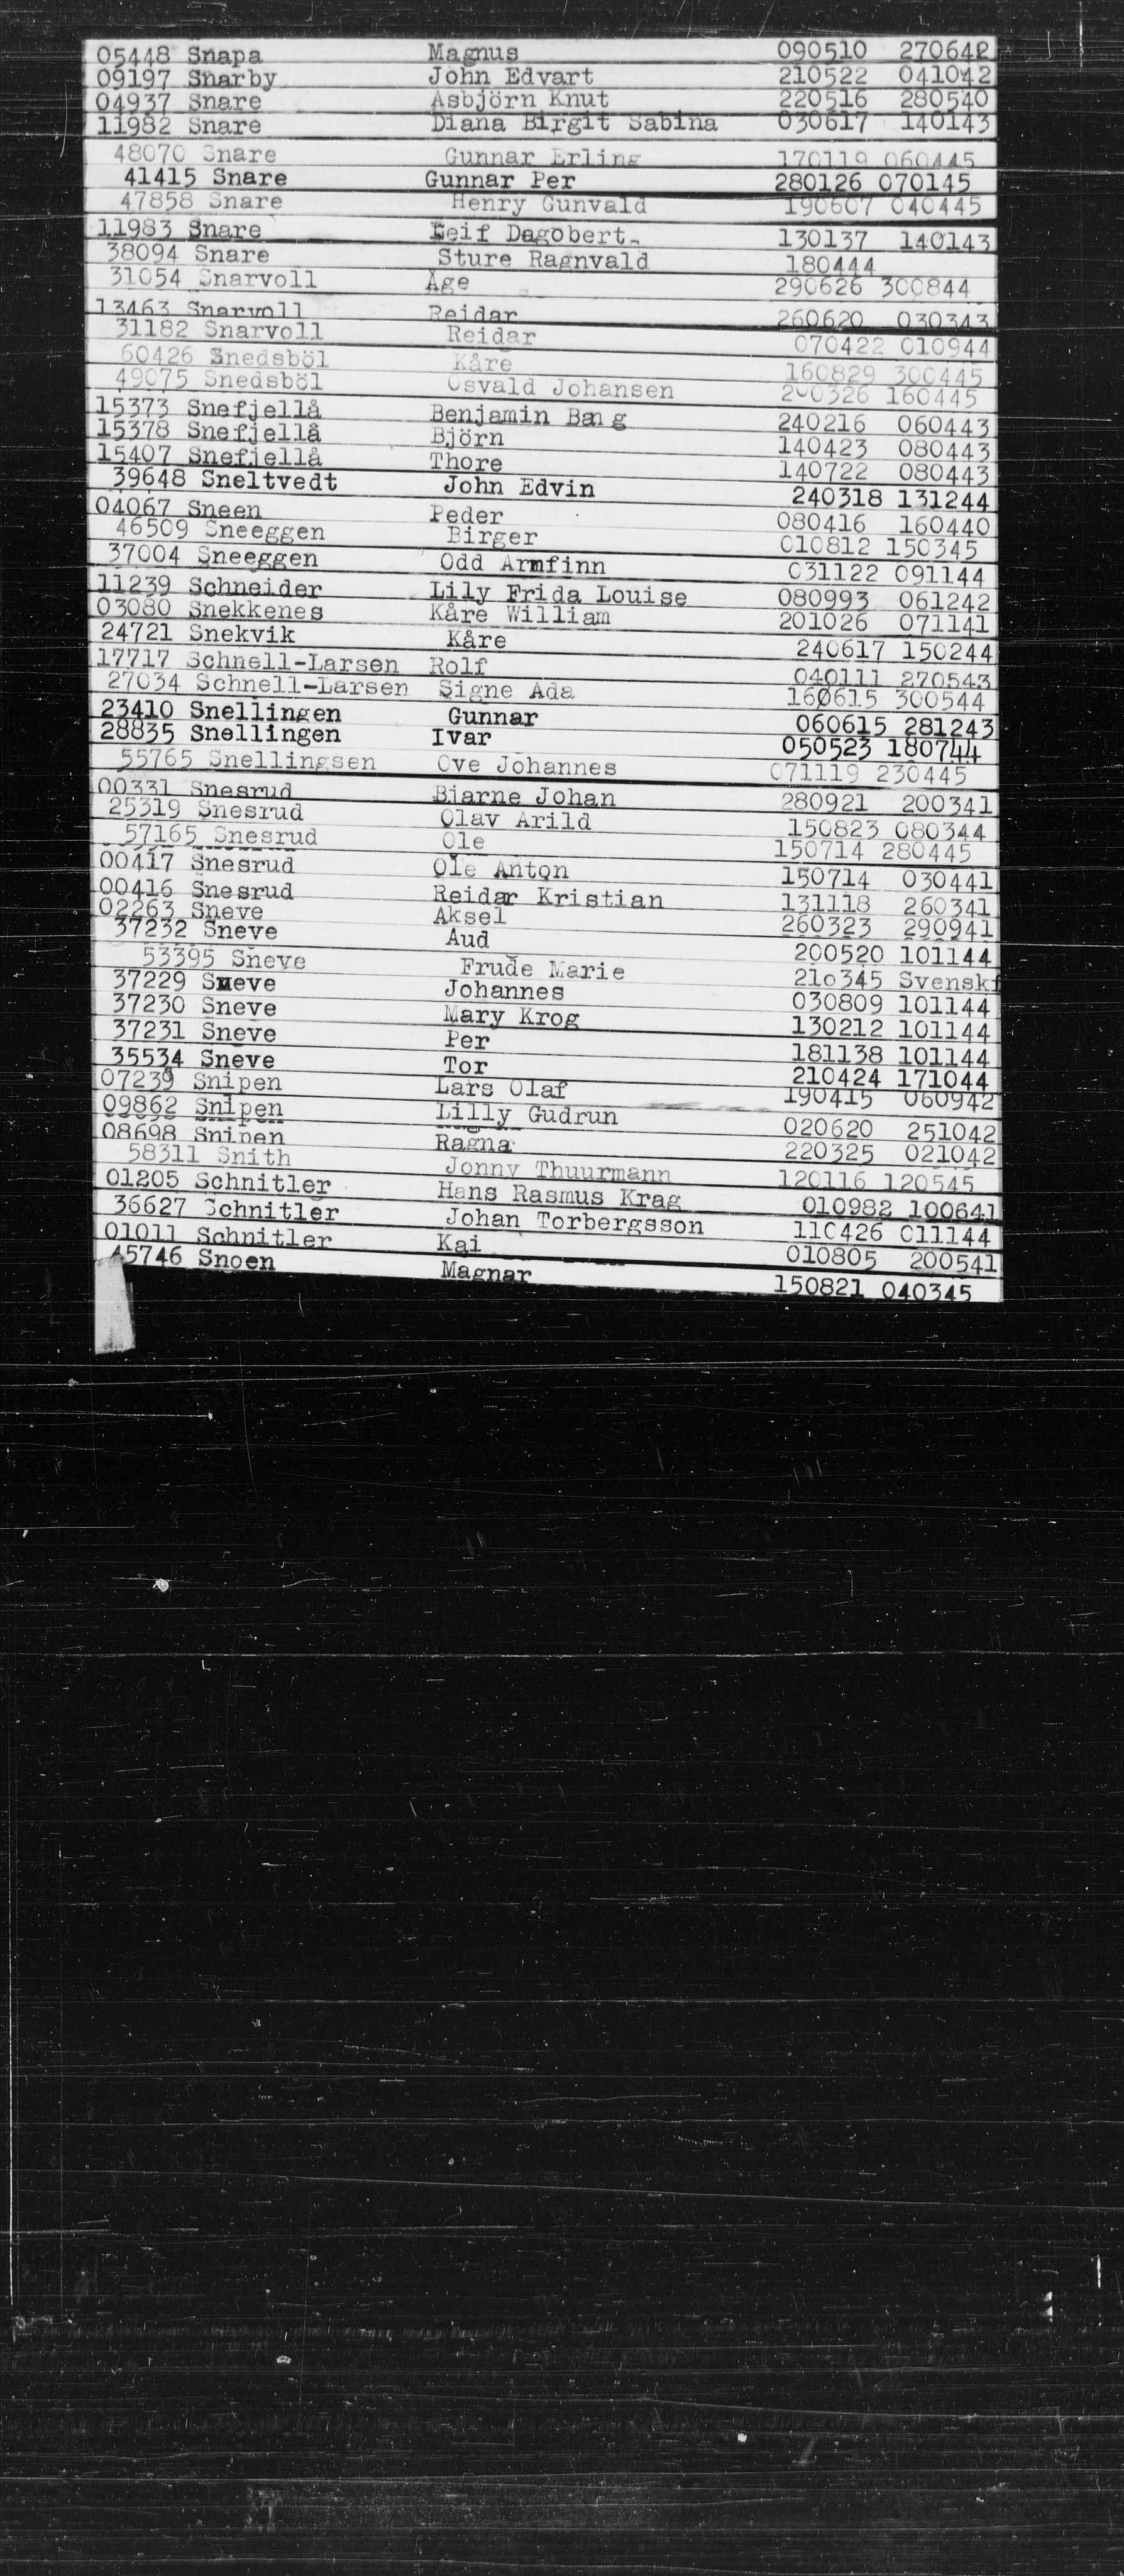 05448 Snapa Magnus 090510 270642
09197 Snarby John Edvart 210522 041042
04937 Snare Asbjörn Knut 220516 280540
11982 Snare Diana Birgit Sabina 030617 140143
48070 Snare Gunnar Erling 170119 060445
41415 Snare Gunnar Per 280126 070145
47858 Snare Henry Gunvald 190607 040445
11983 Snare Leif Dagobert 130137 140143
38094 Snare Sture Ragnvald 180444
31054 Snarvoll Åge 290626 300844
13463 Snarvoll Reidar 260620 030343
31182 Snarvoll Reidar 070422 010944
60426 Snedsböl Kåre 160829 300445
49075 Snedsböl Osvald Johansen 200326 160445
15373 Snefjellå Benjamin Bang 240216 060443
15378 Snefjellå Björn 140423 080443
15407 Snefjellå Thore 140722 080443
39648 Sneltvedt John Edvin 240318 131244
04067 Sneen Peder 080416 160440
46509 Sneeggen Birger 010812 150345
37004 Sneeggen Odd Armfinn 031122 091144
11239 Schneider Lily Frida Louise 080993 061242
03080 Snekkenes Kåre William 201026 071141
24721 Snekvik Kåre 240617 150244
17717 Schnell-Larsen Rolf 040111 270543
27034 Schnell-Larsen Signe Ada 160615 300544
23410 Snellingen Gunnar 060615 281243
28835 Snellingen Ivar 050523 180744
55765 Snellingsen Ove Johannes 071119 230445
00331 Snesrud Bjarne Johan 280921 200341
25319 Snesrud Olav Arild 150823 080344
57165 Snesrud Ole 150714 280445
00417 Snesrud Ole Anton 150714 030441
00416 Snesrud Reidar Kristian 131118 260341
02263 Sneve Aksel 260323 290941
37232 Sneve Aud 200520 101144
53395 Sneve Frude Marie 210345 Svensk
37229 Sneve Johannes 030809 101144
37230 Sneve Mary Krog 130212 101144
37231 Sneve Per 181138 101144
35534 Sneve Tor 210424 171044
07239 Snipen Lars Olaf 190415 060942
09862 Snipen Lilly Gudrun 020620 251042
08698 Snipen Ragna 220325 021042
58311 Snith Jonny Thuurmann 120116 120545
01205 Schnitler Hans Rasmus Krag 010982 100641
36627 Schnitler Johan Torbergsson 110426 011144
01011 Schnitler Kai 010805 200541
45746 Snoen Magnar 150821 040345